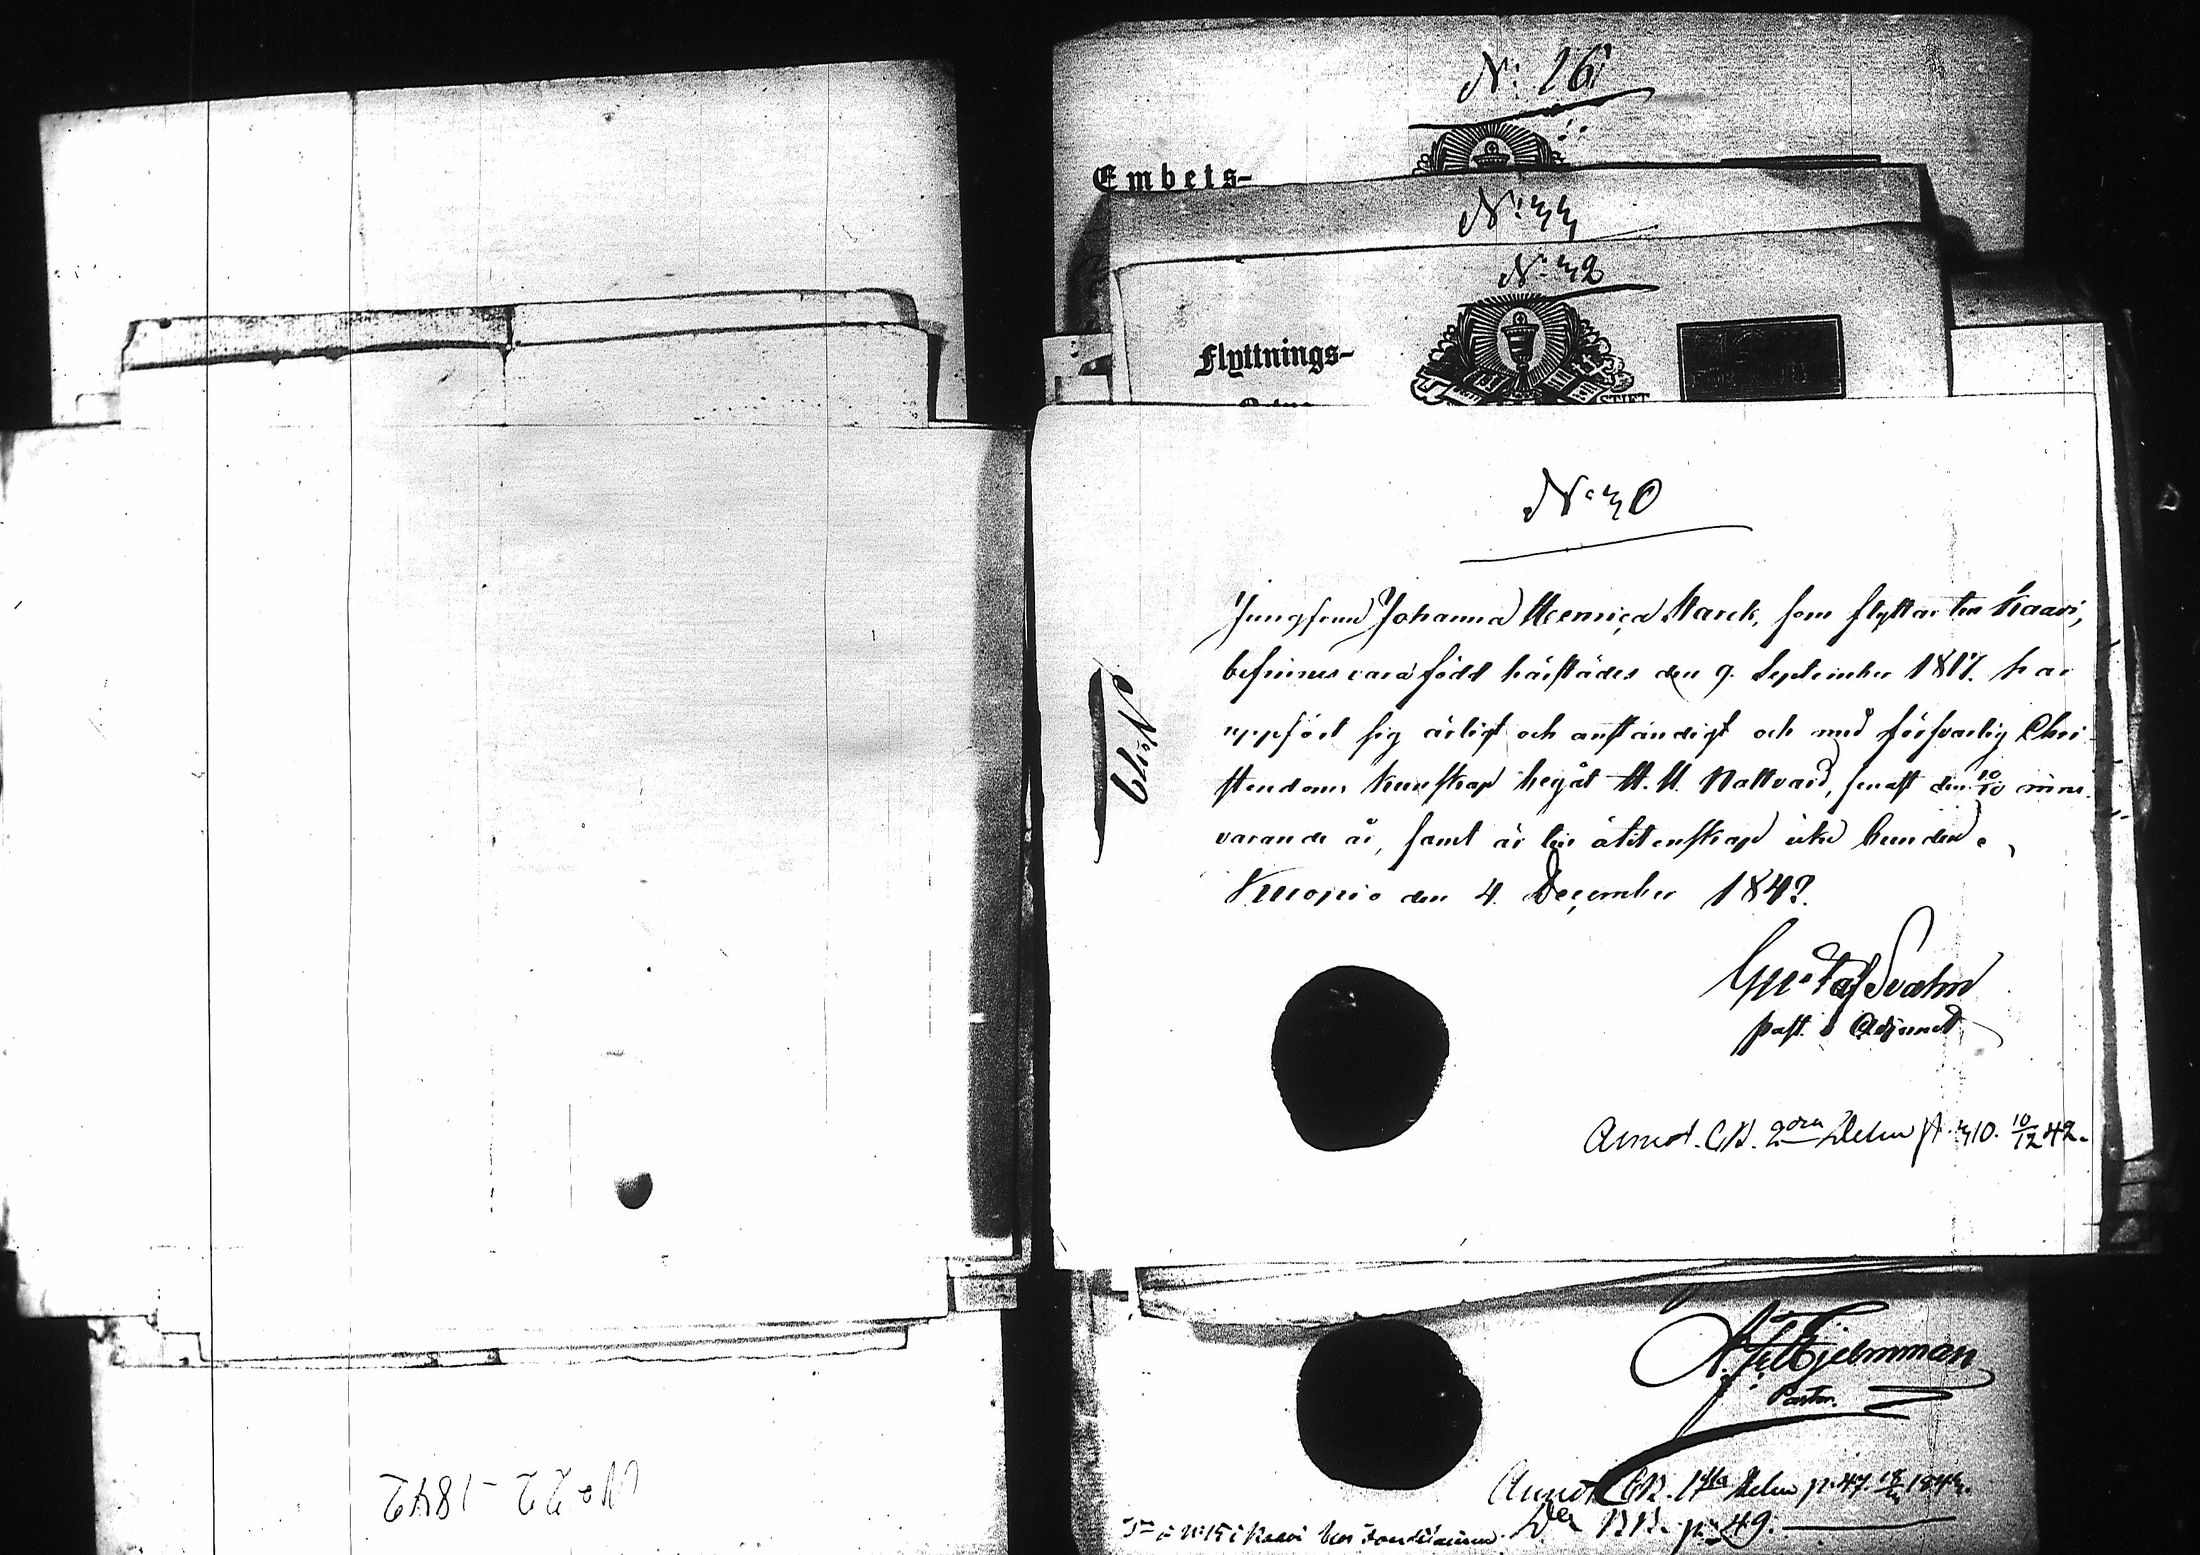 N: 26
Embets-
N: 33
N: 32
Flyttnings-
STIFT
N: 30
Jungfrun Johanna Henrica Starck, som flyttar till Kaavi,
befinnes vara född härstädes den 9. September 1817. har
uppfört sig ärligt och anständigt och med försvarlig Chri-
stendoms kunskap begåt H. H. Nattvard, senast den 10/10 inne-
varande år, samt är till äktenskap icke bunden.
Kuopio den 4. December 1842.
Gustaf Svahn
past. Adjunct
Annot. C.B. 2dra Delen p. 310. 10/12 42.
N: 19
Hjelmman
Pastor.
Annot. C.B. 1sta Delen p. 47.
B.B. p. 49.
No 22 - 1842